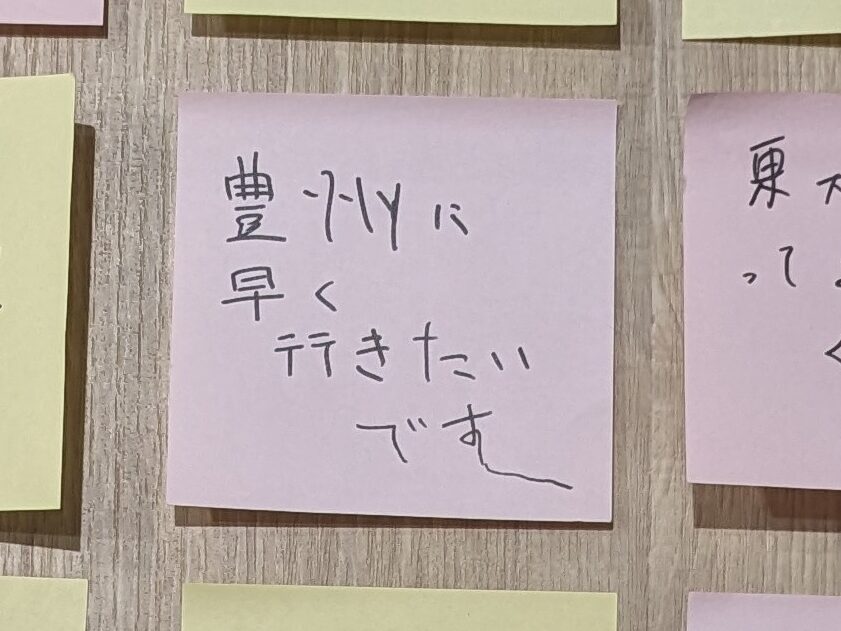 豊州に
早く
行きたい
です
東
って